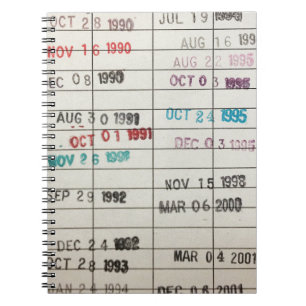 OCT 28 1990
NOV 16 1990
EC 08 1990
AUG 30 1991
OCT 01 1991
NOV 26 1991
SEP 29 1992
DEC 24 1992
OCT 28 1993
JAN 24 1994
JUL 19
AUG 16
OCT 03 1995
OCT 24 1995
NOV 15 1998
MAR 06 2000
MAR 04 2001
DEC 06 2001